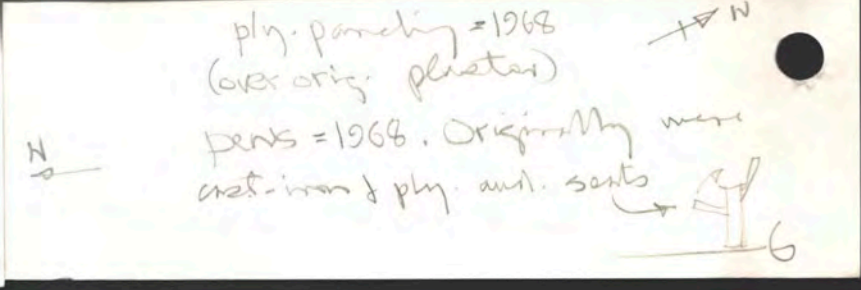 ply. paneling = 1968
N
(over orig. plaster)
pews = 1968. Originally were
N
cast-iron & ply. aud. seats
6